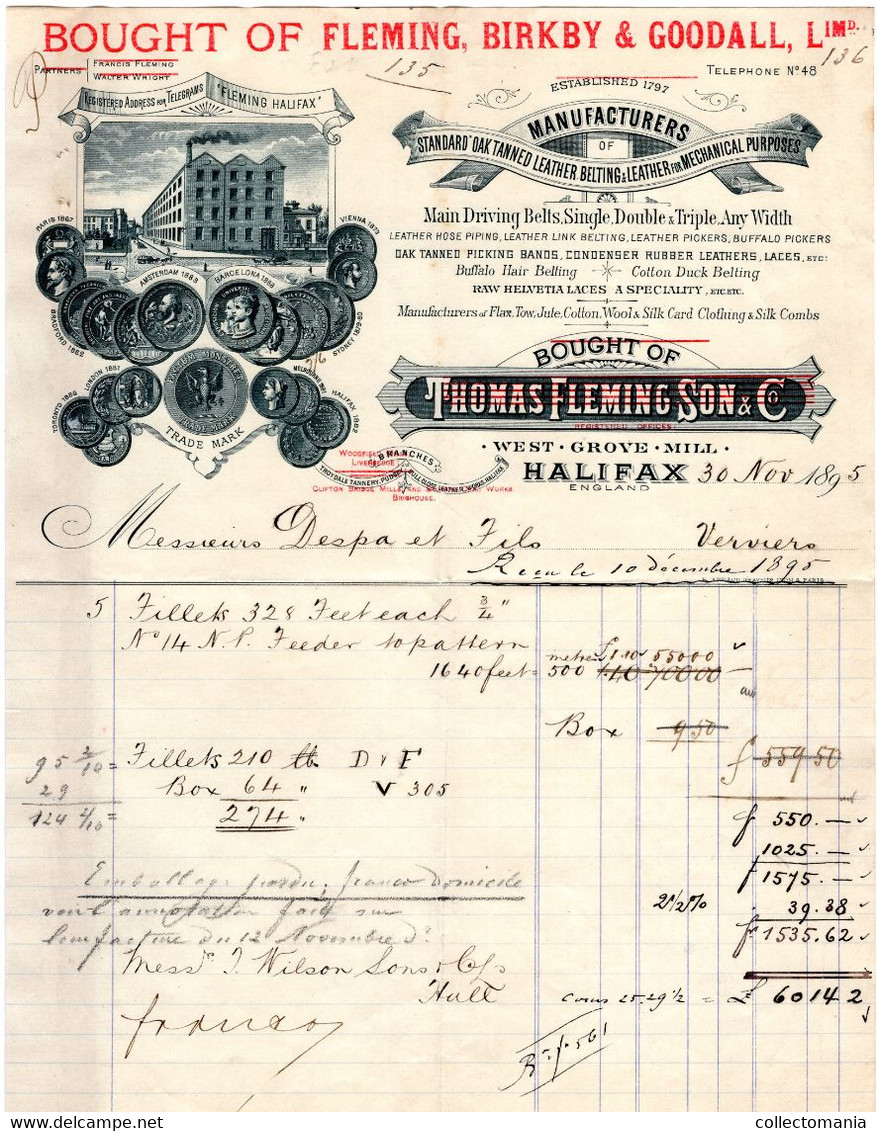 BOUGHT OF FLEMING, BIRKBY & GOODALL, LIMD.
135
136
PARTNERS FRANCIS FLEMING
WALTER WRIGHT
TELEPHONE No 48
REGISTERED ADDRESS FOR TELEGRAMS "FLEMING HALIFAX"
ESTABLISHED 1797
MANUFACTURERS
OF
"STANDARD" OAK TANNED LEATHER BELTING & LEATHER FOR MECHANICAL PURPOSES
Main Driving Belts, Single, Double & Triple, Any Width
LEATHER HOSE PIPING, LEATHER LINK BELTING, LEATHER PICKERS, BUFFALO PICKERS
OAK TANNED PICKING BANDS, CONDENSER RUBBER LEATHERS, LACES, ETC:
Buffalo Hair Belting Cotton Duck Belting
RAW HELVETIA LACES A SPECIALITY, ETC. ETC.
Manufacturers of Flax, Tow, Jute, Cotton, Wool & Silk Card Clothing & Silk Combs
PARIS 1867
VIENNA 1873
AMSTERDAM 1883
BARCELONA 1888
BRADFORD 1882
SYDNEY 1879-80
LONDON 1881
MELBOURNE
TORONTO 1882
HALIFAX 1882
TRADE MARK
BOUGHT OF
THOMAS FLEMING SON & Co
REGISTERED OFFICES
WEST · GROVE · MILL
BRANCHES
TROYDALE TANNERY, PUDSEY
HALIFAX 30 Nov 1895
ENGLAND
CLIFTON BRIDGE MILLS AND
BRIGHOUSE.
Messieurs Despa et Fils Verviers
Reçu le 10 décembre 1895
5 Fillets 328 Feet each 3/4"
No 14 N.P. Feeder to pattern
metres 1.10 55000
1640 feet = 500 1.40 700 00
Box 9 50
95 2/10 = Fillets 210 lb. D & F
f 559 50
29 Box 64 " V 305
124 2/10 = 274 "
f 550.—
1025.—
f 1575.—
Emballage perdu, franco domicile
2 1/2 % 39.38
voir l'annotation faite sur
fr 1535.62
leur facture du 12 Novembre Dr
Messrs T. Wilson Sons & Co
Hull
cours 25.29 1/2 = £ 60 14 2
franco
collectomania